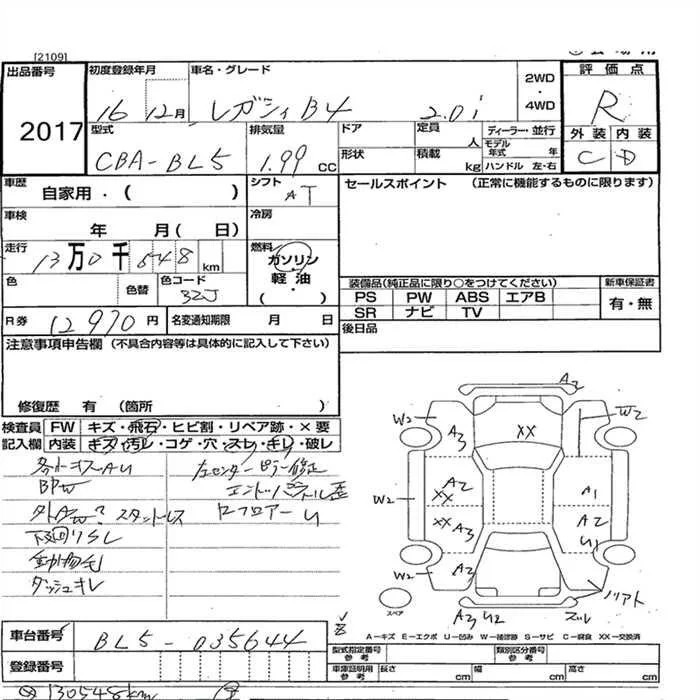 [2109]
出品番号 初度登録年月 車名・グレード 2WD・4WD 評価点
2017 16 12月 レガシィB4 2.0i R
型式 排気量 ドア 定員 人 ディーラー・並行 外装 内装
CBA-BL5 1.99 CC 形状 積載 kg モデル年式 年 ハンドル 左・右 C D
車歴 自家用・( ) シフト AT セールスポイント (正常に機能するものに限ります)
車検 年 月( 日) 冷房
走行 13万0千548km 燃料 ガソリン・軽油 ( )
色 色替 色コード 32J
装備品(純正品に限り○をつけてください) 新車保証書
PS PW ABS エアB 有・無
SR ナビ TV
R券 12970円 名変通知期限 月 日 後日品
注意事項申告欄 (不具合内容等は具体的に記入して下さい)
修復歴 有 (箇所 )
検査員 FW キズ・飛石・ヒビ割・リペア跡・×要
記入欄 内装 キズ・汚レ・コゲ・穴・スレ・キレ・破レ
各所キズAU 左センターピラー修正
BPW エンドパネル歪
外AW? スタッドレス
下廻りサビ フロアーU
動物毛
ダッシュキレ
A3
W2 A3 XX W2
W2 A2 XX A1
XX A3 A2 U1
W2 A2 リアト
スペア A3 U2 ズレ
A-キズ E-エクボ U-凹み W-補修跡 S-サビ C-腐食 XX-交換済
車台番号 BL5-035644 型式指定番号 参考 類別区分番号 参考
登録番号 車庫証明用 参考 長さ cm 幅 cm 高さ cm
130548km